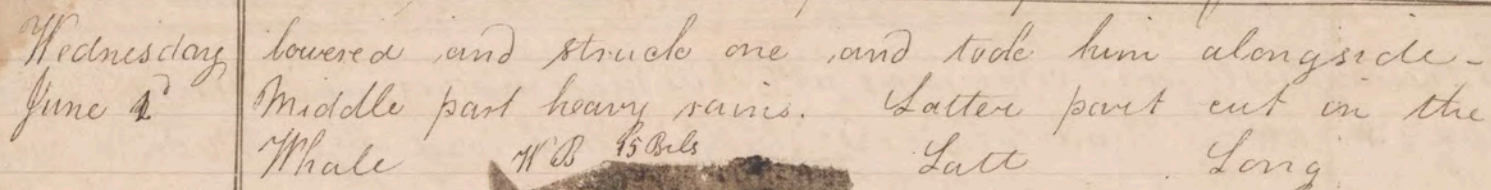 Wednesday lowered and struck one and took him alongside -
June 1d Middle part heavy rains. Latter part cut in the
Whale W B 45 Bbls Latt Long